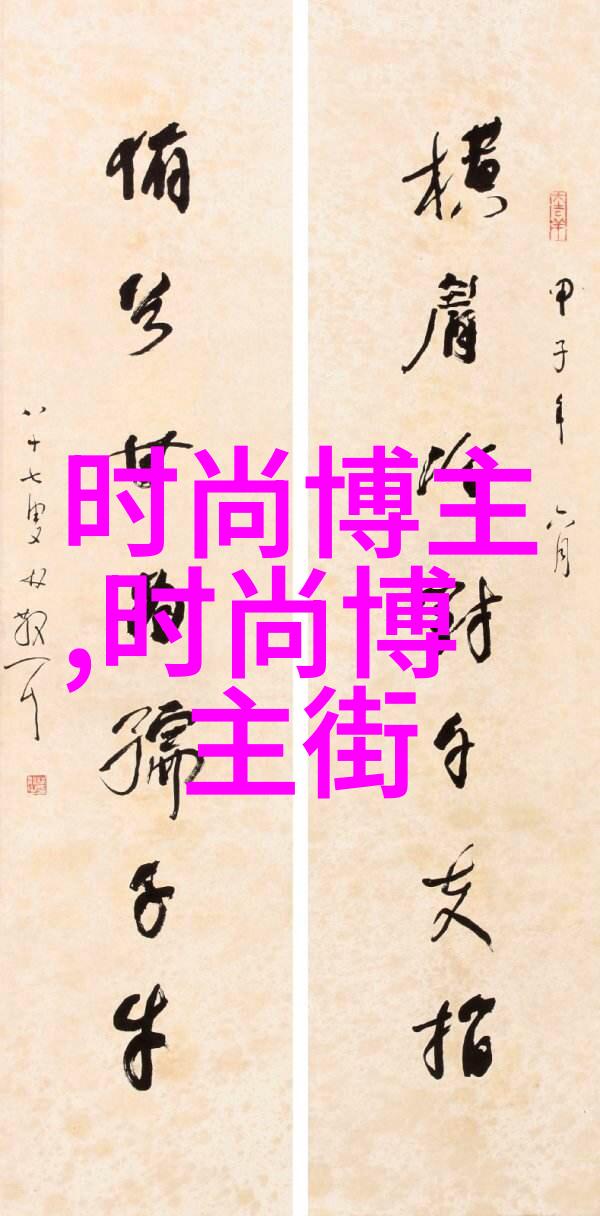 时尚博主
,时尚博
主街
甲子年六月
横眉冷对千夫指
俯首甘为孺子牛
八十七叟林散耳